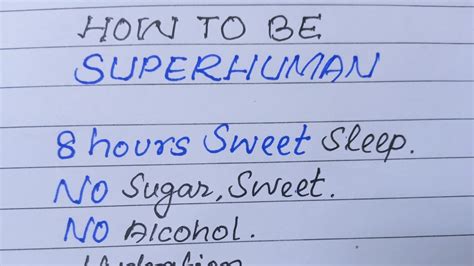 HOW TO BE
SUPERHUMAN
8 hours Sweet Sleep.
NO Sugar, Sweet.
NO Alcohol.